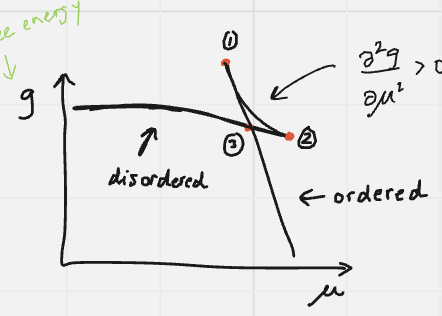 energy
①
∂²g
∂μ²
> 0
g
③
②
disordered
ordered
μ